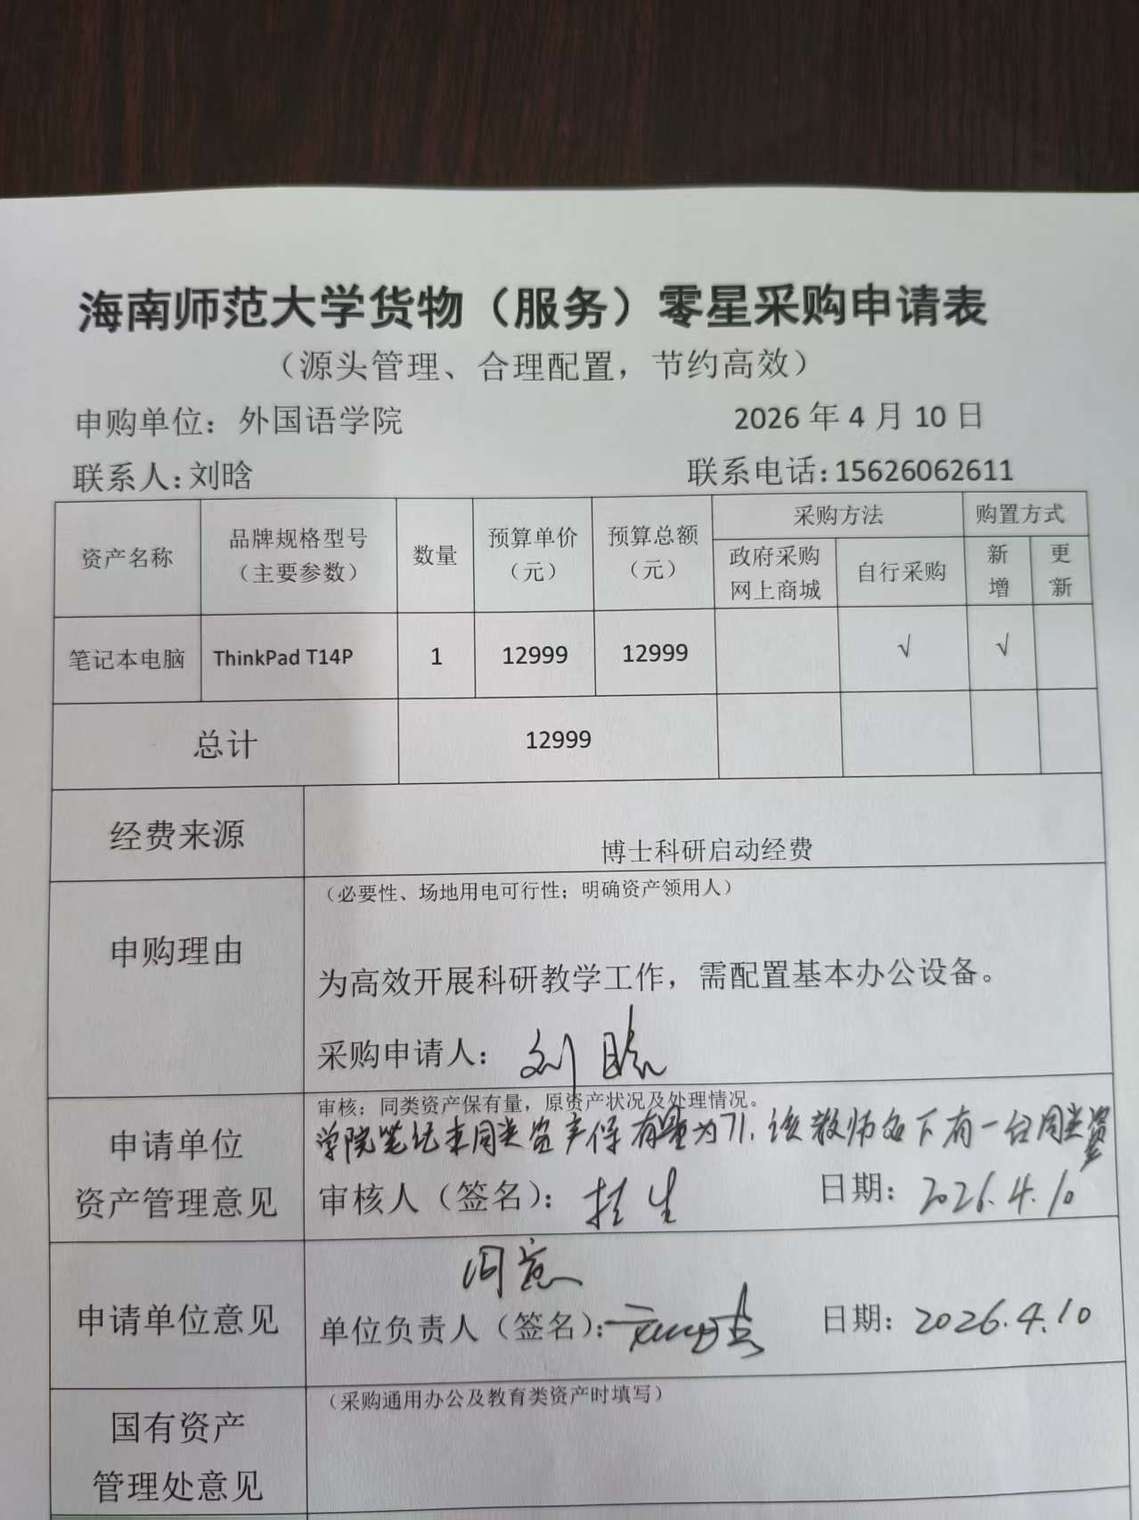 海南师范大学货物（服务）零星采购申请表
（源头管理、合理配置，节约高效）
申购单位：外国语学院 2026 年 4 月 10 日
联系人：刘晗 联系电话：15626062611
资产名称 品牌规格型号（主要参数） 数量 预算单价（元） 预算总额（元） 采购方法 购置方式
政府采购网上商城 自行采购 新增 更新
笔记本电脑 ThinkPad T14P 1 12999 12999 √ √
总计 12999
经费来源 博士科研启动经费
（必要性、场地用电可行性；明确资产领用人）
申购理由
为高效开展科研教学工作，需配置基本办公设备。
采购申请人：刘晗
审核：同类资产保有量，原资产状况及处理情况。
申请单位
学院笔记本同类资产保有量为71，该教师名下有一台同类资产
资产管理意见 审核人（签名）： 日期：2026.4.10
同意
申请单位意见 单位负责人（签名）： 日期：2026.4.10
（采购通用办公及教育类资产时填写）
国有资产
管理处意见